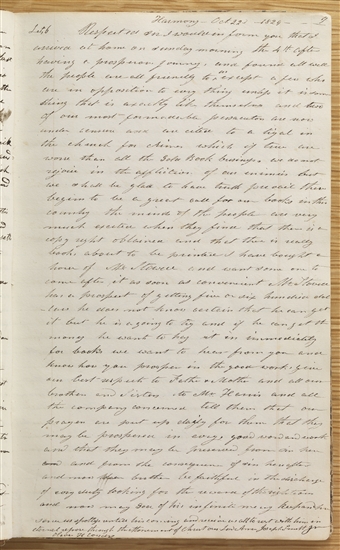 Harmony Oct 22d 1829 9
Respected Sir I would in form you that I
arived at home on sunday morning the 4th after
having a prosperous Journey, and found all well
the people are all friendly to us except a few who
are in opposition to evry thing unless it is some
thing that is exactly like themselves and two
of our most formadable persecutors are now
under censure and are cited to a tryal in
the church for crimes which if true are
worse than all the Gold Book business. we do not
rejoice in the affliction of our enimies but
we shall be glad to have truth prevail there
begins to be a great call for our books in this
country the minds of the people are very
much excited when they find that there is a
copy right obtained and that there is really
books about to be printed I have bought a
horse of Mr Stowell and want some one to
come after it as soon as convenient Mr Stowell
has a prospect of getting five or six hundred dol-
lars he does not know certain that he can get
it but he is a going to try and if he can get the
money he want to pay it in immediately
for books we want to hear from you and
know how you prosper in the good work, give
our best respects to Father & Mother and all our
brothers and Sisters, to Mr Harris and all
the company concerned tell them that our
prayers are put up daily for them that they
may be prospered in evry good word and work
and that they may be preserved from sin here
and from the consequence of sin hereafter
and now brother be faithful in the discharge
of evry duty looking for the reward of the righteous
and now may God of his infinite mercy keep and preserve
us spotless untill his coming and receive us all to rest with him in
eternal repose through the attonement of Christ our Lord Amen Joseph Smith Jr
Oliver H Cowdery